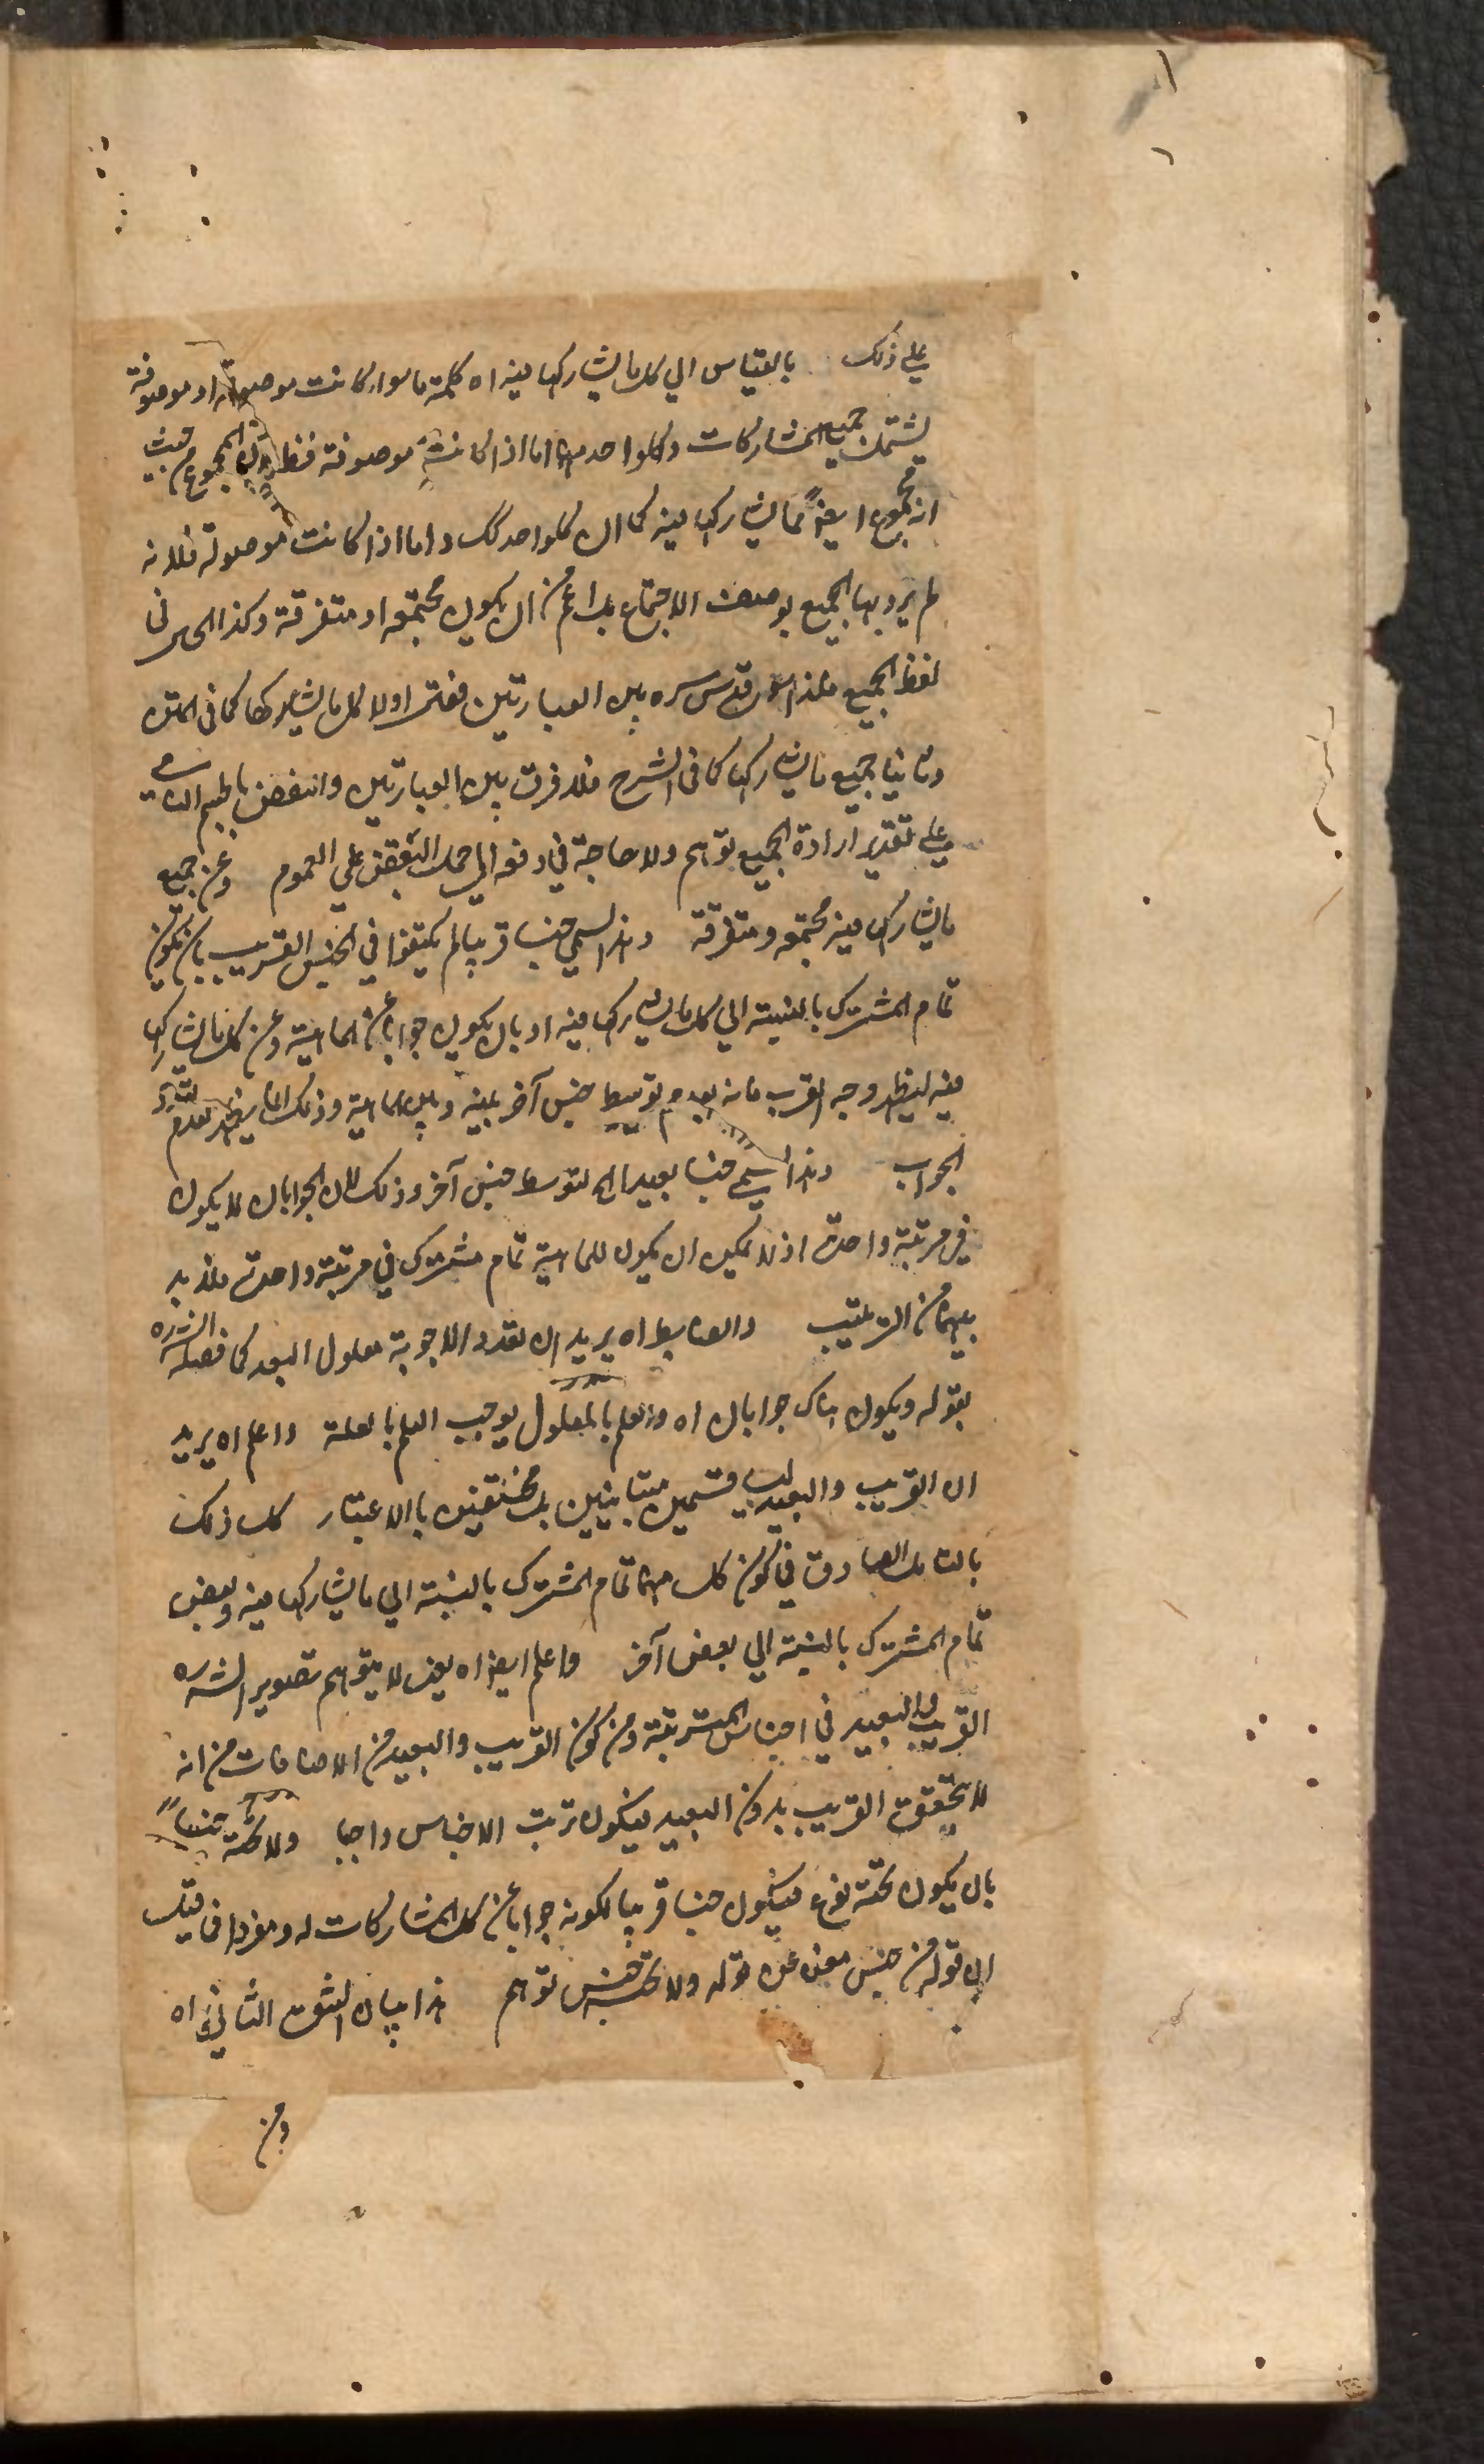 ١
على ذلك بالقياس الى كل ما يشاركها فيه اه كلمة ما سواء كانت موصولة او موصوفة
يشتمل جميع المشاركات وكلواحد منها اما اذا كانت موصوفة فظ لان المجموع من حيث
انه مجموع ايضا مما يشاركها فيه كما ان كلواحد كك واما اذا كانت موصولة فلانه
لم يرد بها الجميع بوصف الاجتماع بل اعم من ان يكون مجتمعه او متفرقة وكذا الحال في
لفظ الجميع فلذا قدس سره بين العبارتين فقال اولا كل ما يشاركها كما في المتن
وثانيا جميع ما يشاركها كما في الشرح فلا فرق بين العبارتين وانتقض بالجسم النامي
على تقدير ارادة الجميع توهم ولا حاجة في دفعه الى حمل النقض على العموم وعن جميع
ما يشاركها فيه مجتمعه ومتفرقة وهذا يسمى جنسا قريبا لم يكتفوا في الجنس القريب بان يكون
تمام المشترك بالنسبة الى كل ما يشاركها فيه او بان يكون جوابا عن الماهية وعن كل ما يشاركها
فيه ليظهر وجه القرب فانه بعدم توسط جنس آخر بينه وبين الماهية وذلك انما يظهر بعدم تعدد
الجواب وهذا يسمى جنسا بعيدا اى لتوسط جنس آخر وذلك لان الجوابان لا يكون
في مرتبة واحدة اذ لا يمكن ان يكون للماهية تمام مشترك في مرتبة واحدة فلا بد
بينهما من الترتيب والضابط اه يريد ان تعدد الاجوبة معلول البعد كما فصله الش ره
بقوله ويكون هناك جوابان اه والعلم بالمعلول يوجب العلم بالعلة واعلم اه يريد
ان القريب والبعيد ليسا قسمين متباينين بل مختلفين بالاعتبار كل ذلك
بالتأمل الصادق في كون كل منهما تمام المشترك بالنسبة الى ما يشاركها فيه وبعض
تمام المشترك بالنسبة الى بعض آخر واعلم ايضا اه يعنى لا يتوهم تصوير الش ره
القريب والبعيد في اجناس المترتبة ومن كون القريب والبعيد من الاضافات من انه
لا يتحقق القريب بدون البعيد فيكون ترتب الاجناس واجبا ولا تحته جنسا
بان يكون تحته نوع فيكون جنسا قريبا لكونه جوابا عن كل المشاركات له ومفردا فما قيل
ان قوله من جنس مغن عن قوله ولا تحته جنس توهم هذا بيان الشق الثاني اه
ومن